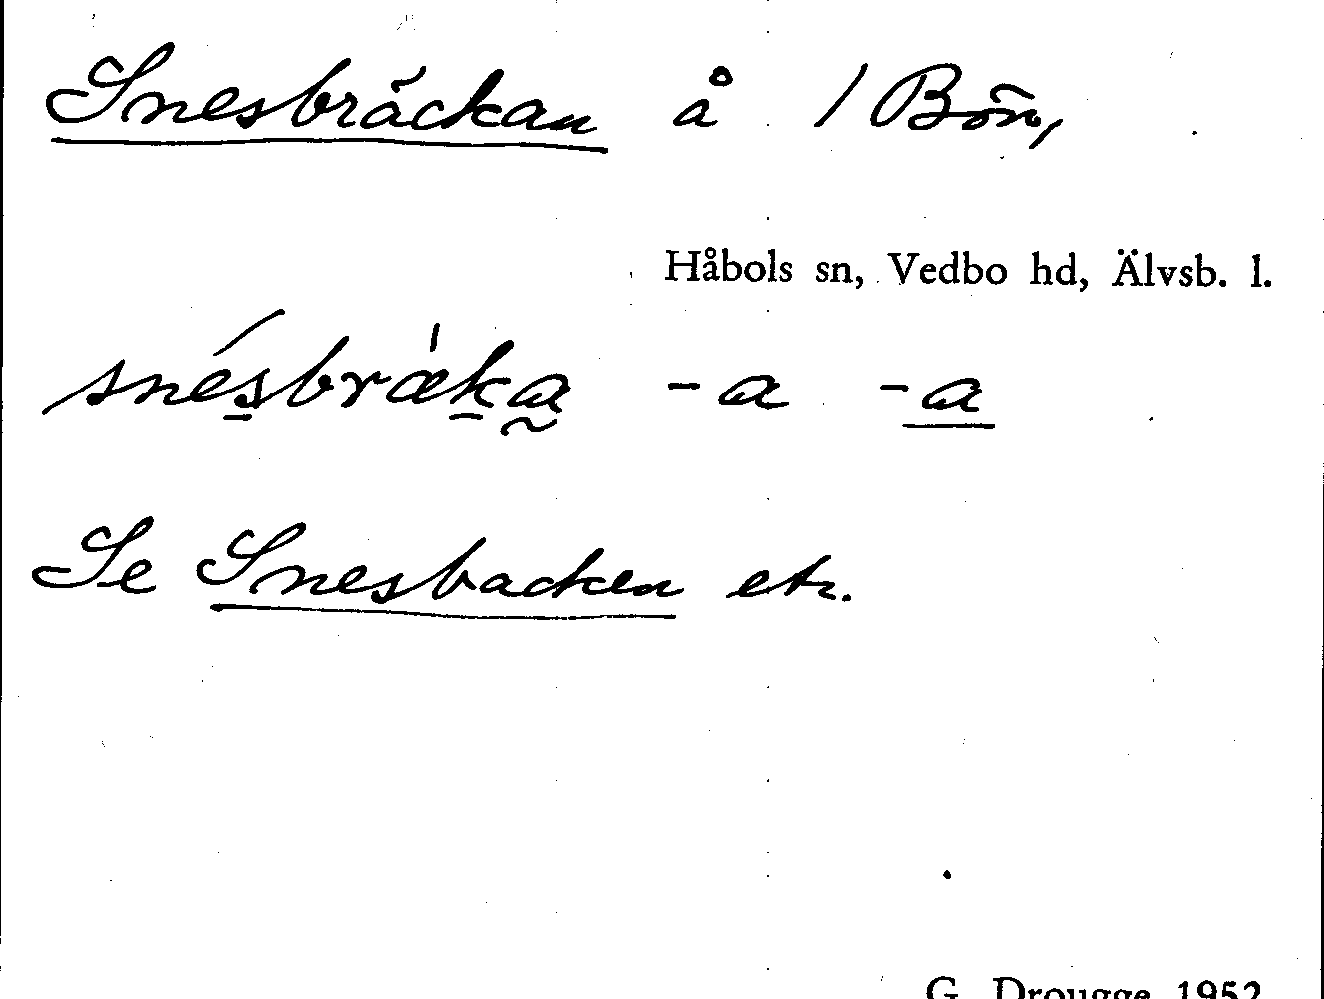 Snesbräckan å 1 Bön,
Håbols sn, Vedbo hd, Älvsb. l.
snésbræ̀ka -a -a
Se Snesbacken etc.
G. Drougge 1952